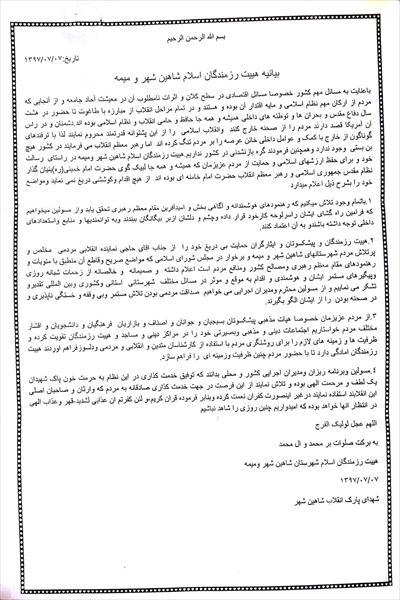 بسم الله الرحمن الرحیم
تاریخ:۱۳۹۷/۰۷/۰۷
بیانیه هییت رزمندگان اسلام شاهین شهر و میمه
باعنایت به مسائل مهم کشور خصوصا مسائل اقتصادی در سطح کلان و اثرات نامطلوب آن در معیشت آحاد جامعه و از آنجایی که
مردم از ارکان مهم نظام اسلامی و مایه اقتدار آن بوده و هستند و در تمام مراحل انقلاب از مبارزه با طاغوت تا حضور در هشت
سال دفاع مقدس و بحران ها و توطئه های داخلی همیشه و همه جا حافظ و حامی انقلاب و نظام اسلامی بوده اند.دشمنان و در راس
آن آمریکا قصد دارند مردم را از صحنه خارج کنند وانقلاب اسلامی را از این پشتوانه قدرتمند محروم نمایند لذا با ترفندهای
گوناگون از خارج با کمک و عوامل داخلی خائن عرصه را بر مردم تنگ کرده اند اما رهبر معظم انقلاب می فرمایند در کشور هیچ
بن بستی وجود ندارد وهمچنین فرمودند گره بازنشدنی در کشور نداریم.هییت رزمندگان اسلام شاهین شهر ومیمه در راستای رسالت
خود و برای حفظ ارزشهای اسلامی و حمایت از مردم عزیزمان که همیشه و همه جا لبیک گوی حضرت امام خمینی(ره)بنیان گذار
نظام مقدس جمهوری اسلامی و رهبر معظم انقلاب حضرت امام خامنه ای بوده اند از هیچ اقدام وکوششی دریغ نمی نماید ومواضع
خود را بشرح ذیل اعلام میدارد
۱.باتمام وجود تلاش میکنیم که رهنمودهای هوشمندانه و آگاهی بخش و امیدآفرین مقام معظم رهبری تحقق یابد واز مسولین میخواهیم
که فرامین راه گشای ایشان راسرلوحه کارخود قرار داده وچشم و دلشان ازبر بیگانگان ببندند وبه توانمندیها و منابع واستعدادهای
داخلی توجه داشته باشندو به آن اعتماد کنند.
۲.هییت رزمندگان و پیشکسوتان و ایثارگران حمایت بی دریغ خود را از جناب اقای حاجی نماینده انقلابی مردمی مخلص و
پرتلاش مردم شهرستانهای شاهین شهر و میمه و برخوار در مجلس شورای اسلامی که مواضع صریح وقاطع آن منطبق با منویات و
رهنمودهای مقام معظم رهبری ومصالح کشور ومنافع مردم است اعلام داشته و صمیمانه و خالصانه از زحمات شبانه روزی
وپیگیرهای مستمر ایشان و هوشمندی و اقدام به موقع و موثر در مسائل مختلف شهرستانی استانی وکشوری وبین المللی تقدیرو
تشکر می نماییم و از مسولین محترم ومدیران اجرایی می خواهیم صداقت مردمی بودن تلاش مستمر وبی وقفه و خستگی ناپذیری و
در صحنه بودن را از ایشان الگو بگیرند.
۳.از مردم عزیزمان خصوصا هیات مذهبی پیشکسوتان بسیجیان و جوانان و اصناف و بازاریان فرهنگیان و دانشجویان و اقشار
مختلف مردم خواستاریم اجتماعات دینی و مذهبی وبصیرتی خود را در مراکز دینی و مساجد و هییت رزمندگان تقویت کرده و
ظرفیت ها و زمینه های لازم را برای روشنگری مردم با استفاده از کارشناسان متدین و انقلابی و مردمی ودلسوزفراهم اوردند هییت
رزمندگان امادگی دارد تا با حضور مردم چنین ظرفیت وزمینه ای را فراهم سازد.
۴.مسولین وبرنامه ریزان ومدیران اجرایی کشور و محلی بدانند که توفیق خدمت گذاری در این نظام به حرمت خون پاک شهیدان
یک لطف و مرحمت الهی بوده و تلاش نمایند از این فرصت در جهت خدمت گذاری صادقانه به مردم که وارثان و صاحبان اصلی
این انقلابند استفاده نمایند درغیر اینصورت کفران نعمت کرده وبنابر فرموده قران کریم.و لئن کفرتم ان عذابی لشدید.قهر وعذاب الهی
در انتظار انها خواهد بوده که امیدواریم چنین روزی را شاهد نباشیم
اللهم عجل لولیک الفرج
به برکت صلوات بر محمد و ال محمد
هییت رزمندگان اسلام شهرستان شاهین شهر ومیمه
۱۳۹۷/۰۷/۰۷
شهدای پارک انقلاب شاهین شهر